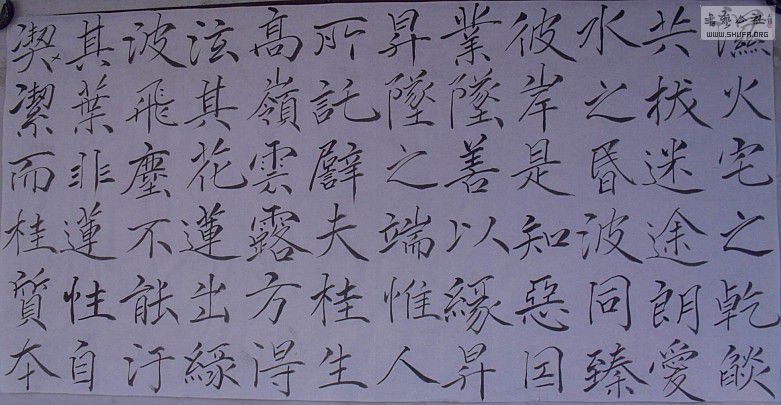 火宅之乾燄
共拔迷途朗愛
水之昬波同臻
彼岸是知惡因
業墜善以緣昇
昇墜之端惟人
所託譬夫桂生
高嶺雲露方得
泫其花蓮出緣
波飛塵不能汙
其葉非蓮性自
潔而桂質本
WWW.SHUFA.ORG